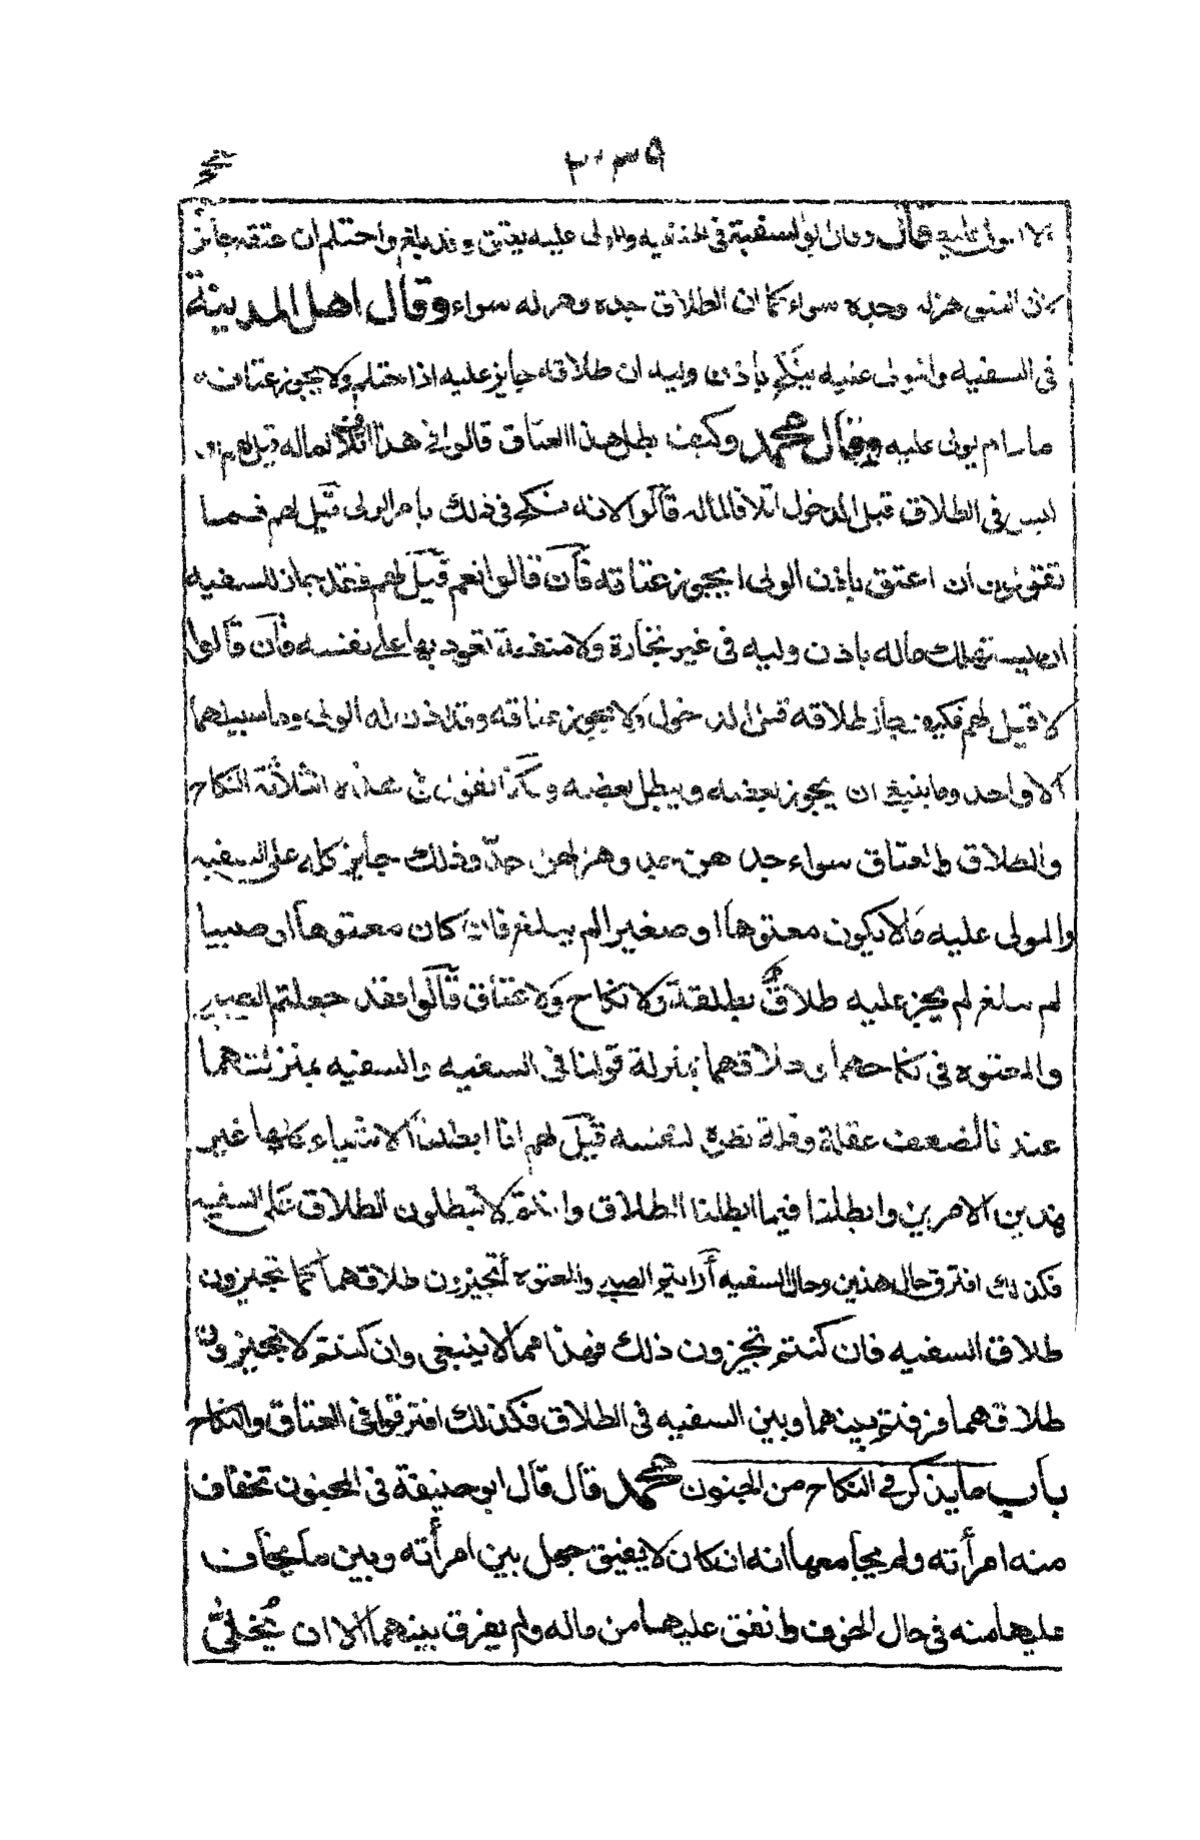 ٢٠٣٩
المولى عليه قال وقال ابو السفيه والمولى عليه يعتق وقد بلغ واحتلم ان عتقه جائز
العتق هزله وجده سواء كما ان الطلاق جده وهزله سواء وقال اهل المدينة
فى السفيه والمولى عليه باذن وليه ان طلاقه جايز عليه اذا احتلم ولا يجوز عتاقه
ما دام يولى عليه وقال محمد وكيف بطل هذا العتاق قالوا فى هذا اتلافا لماله قيل لهم او
ليس فى الطلاق قبل الدخول اتلافا لماله قالوا لانه فى ذلك بامر الولى قيل لهم فما
تقولون ان اعتق باذن الولى ايجوز عتاقه فان قالوا نعم قيل لهم فقد جاز للسفيه
ان يستهلك ماله باذن وليه فى غير تجارة ولا منفعة تعود بها على نفسه فان قالوا
لا قيل لهم فكيف جاز طلاقه قبل الدخول ولا يجوز عتاقه وقد اذن له الولى وما سبيلهما
الا واحد وما ينبغى ان يجوز بعضه ويبطل بعضه و هذه الثلاثة النكاح
والطلاق والعتاق سواء جد هن جد وهزلهن جد وذلك جايز كله على السفيه
والمولى عليه مالا يكون معتوها او صغيرا لم يبلغ فان كان معتوها او صبيا
لم يبلغ لم يجز عليه طلاق بطلقة ولا نكاح ولا عتاق قالوا فقد جعلتم الصبى
والمعتوه فى نكاحهما وطلاقهما بمنزلة قولنا فى السفيه والسفيه بمنزلتهما
عندنا لضعف عقله وقلة نظره لنفسه قيل لهم انا ابطلنا الاشياء كلها غير
هذين الامرين وابطلنا فيما ابطلنا الطلاق وانتم لا تبطلون الطلاق على السفيه
فكذلك افترق حال هذين وحال السفيه أرايتم الصبى والمعتوه أتجيزون طلاقهما كما تجيزون
طلاق السفيه فان كنتم تجيزون ذلك فهذا مما لا ينبغى وان كنتم لا تجيزون
طلاقهما فرقتم بينهما وبين السفيه فى الطلاق فكذلك افترقوا فى العتاق والنكاح
باب ما يذكر فى النكاح من الجنون محمد قال قال ابو حنيفة فى المجنون تخاف
منه امرأته ولم يجامعها انه ان كان لا يفيق جعل بين امرأته وبين ما يخاف
عليها منه فى حال الخوف وانفق عليها من ماله ولم يفرق بينهما الا ان يخلى